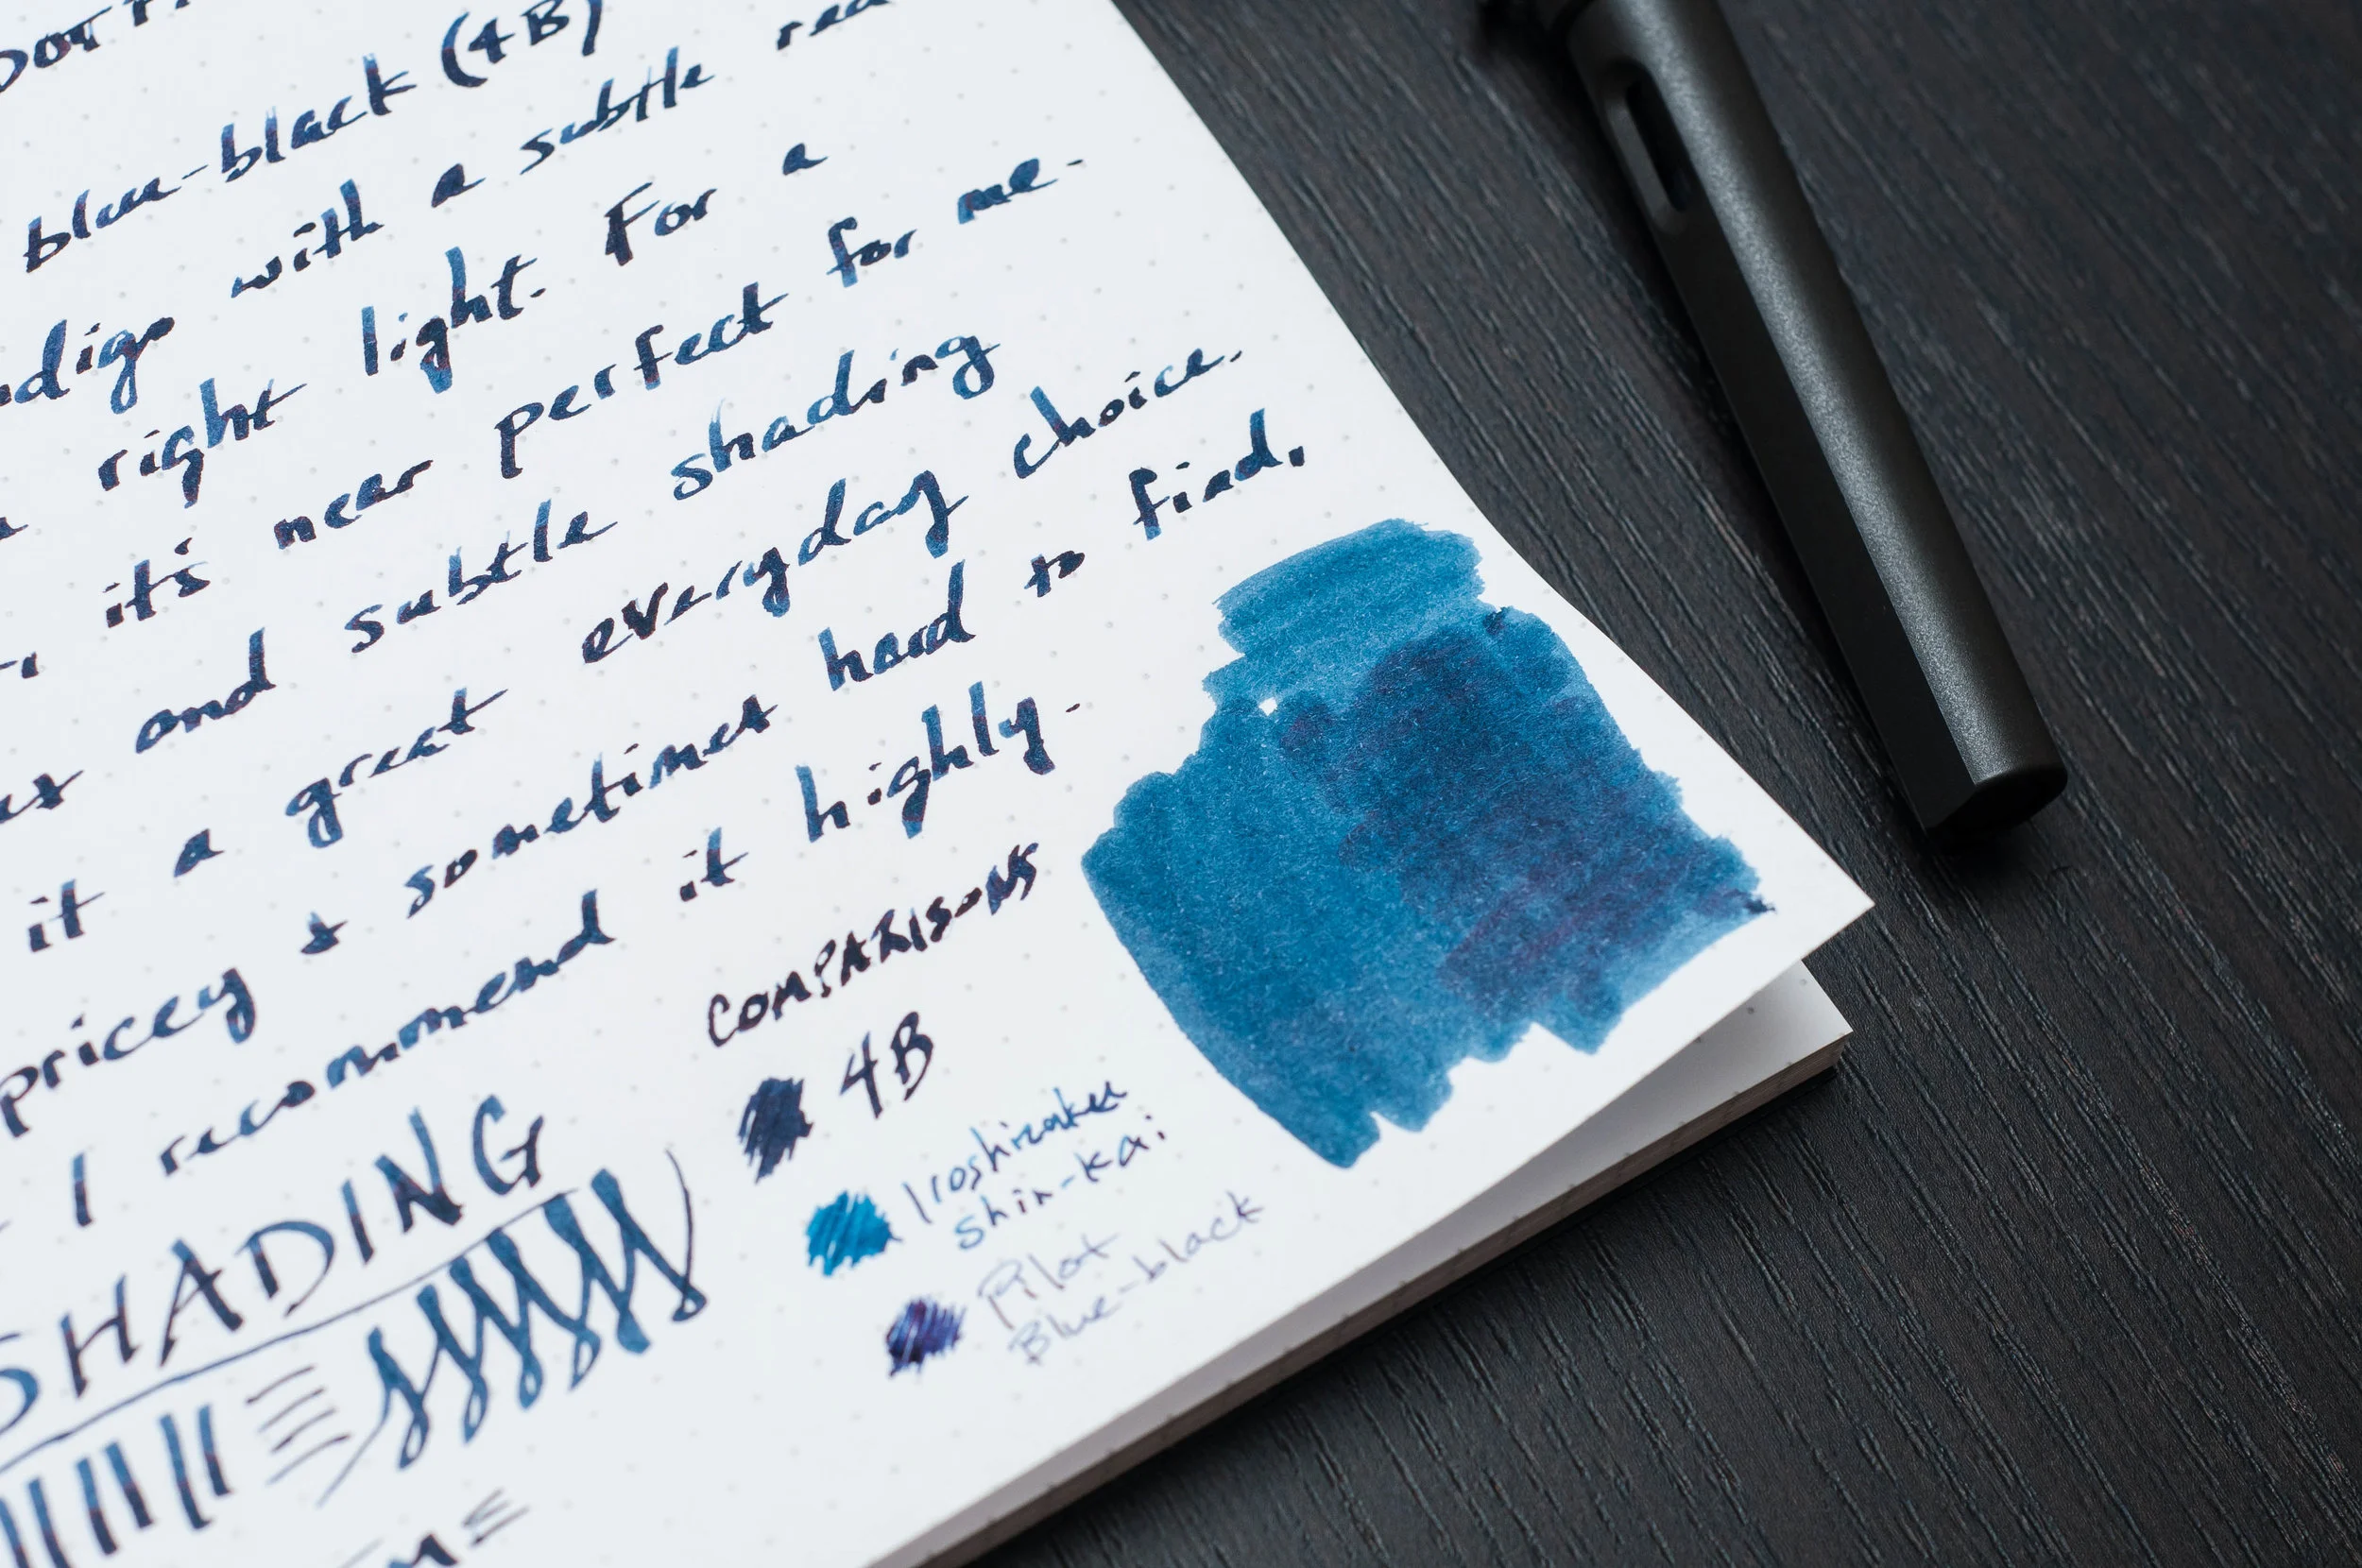 blue-black (4B)
with a subtle
right light. For a
it's near perfect for me.
and subtle shading
it a great everyday choice.
pricey & sometimes hard to find,
I recommend it highly.
COMPARISONS
4B
Iroshizuku
shin-kai
Pilot
Blue-black
SHADING